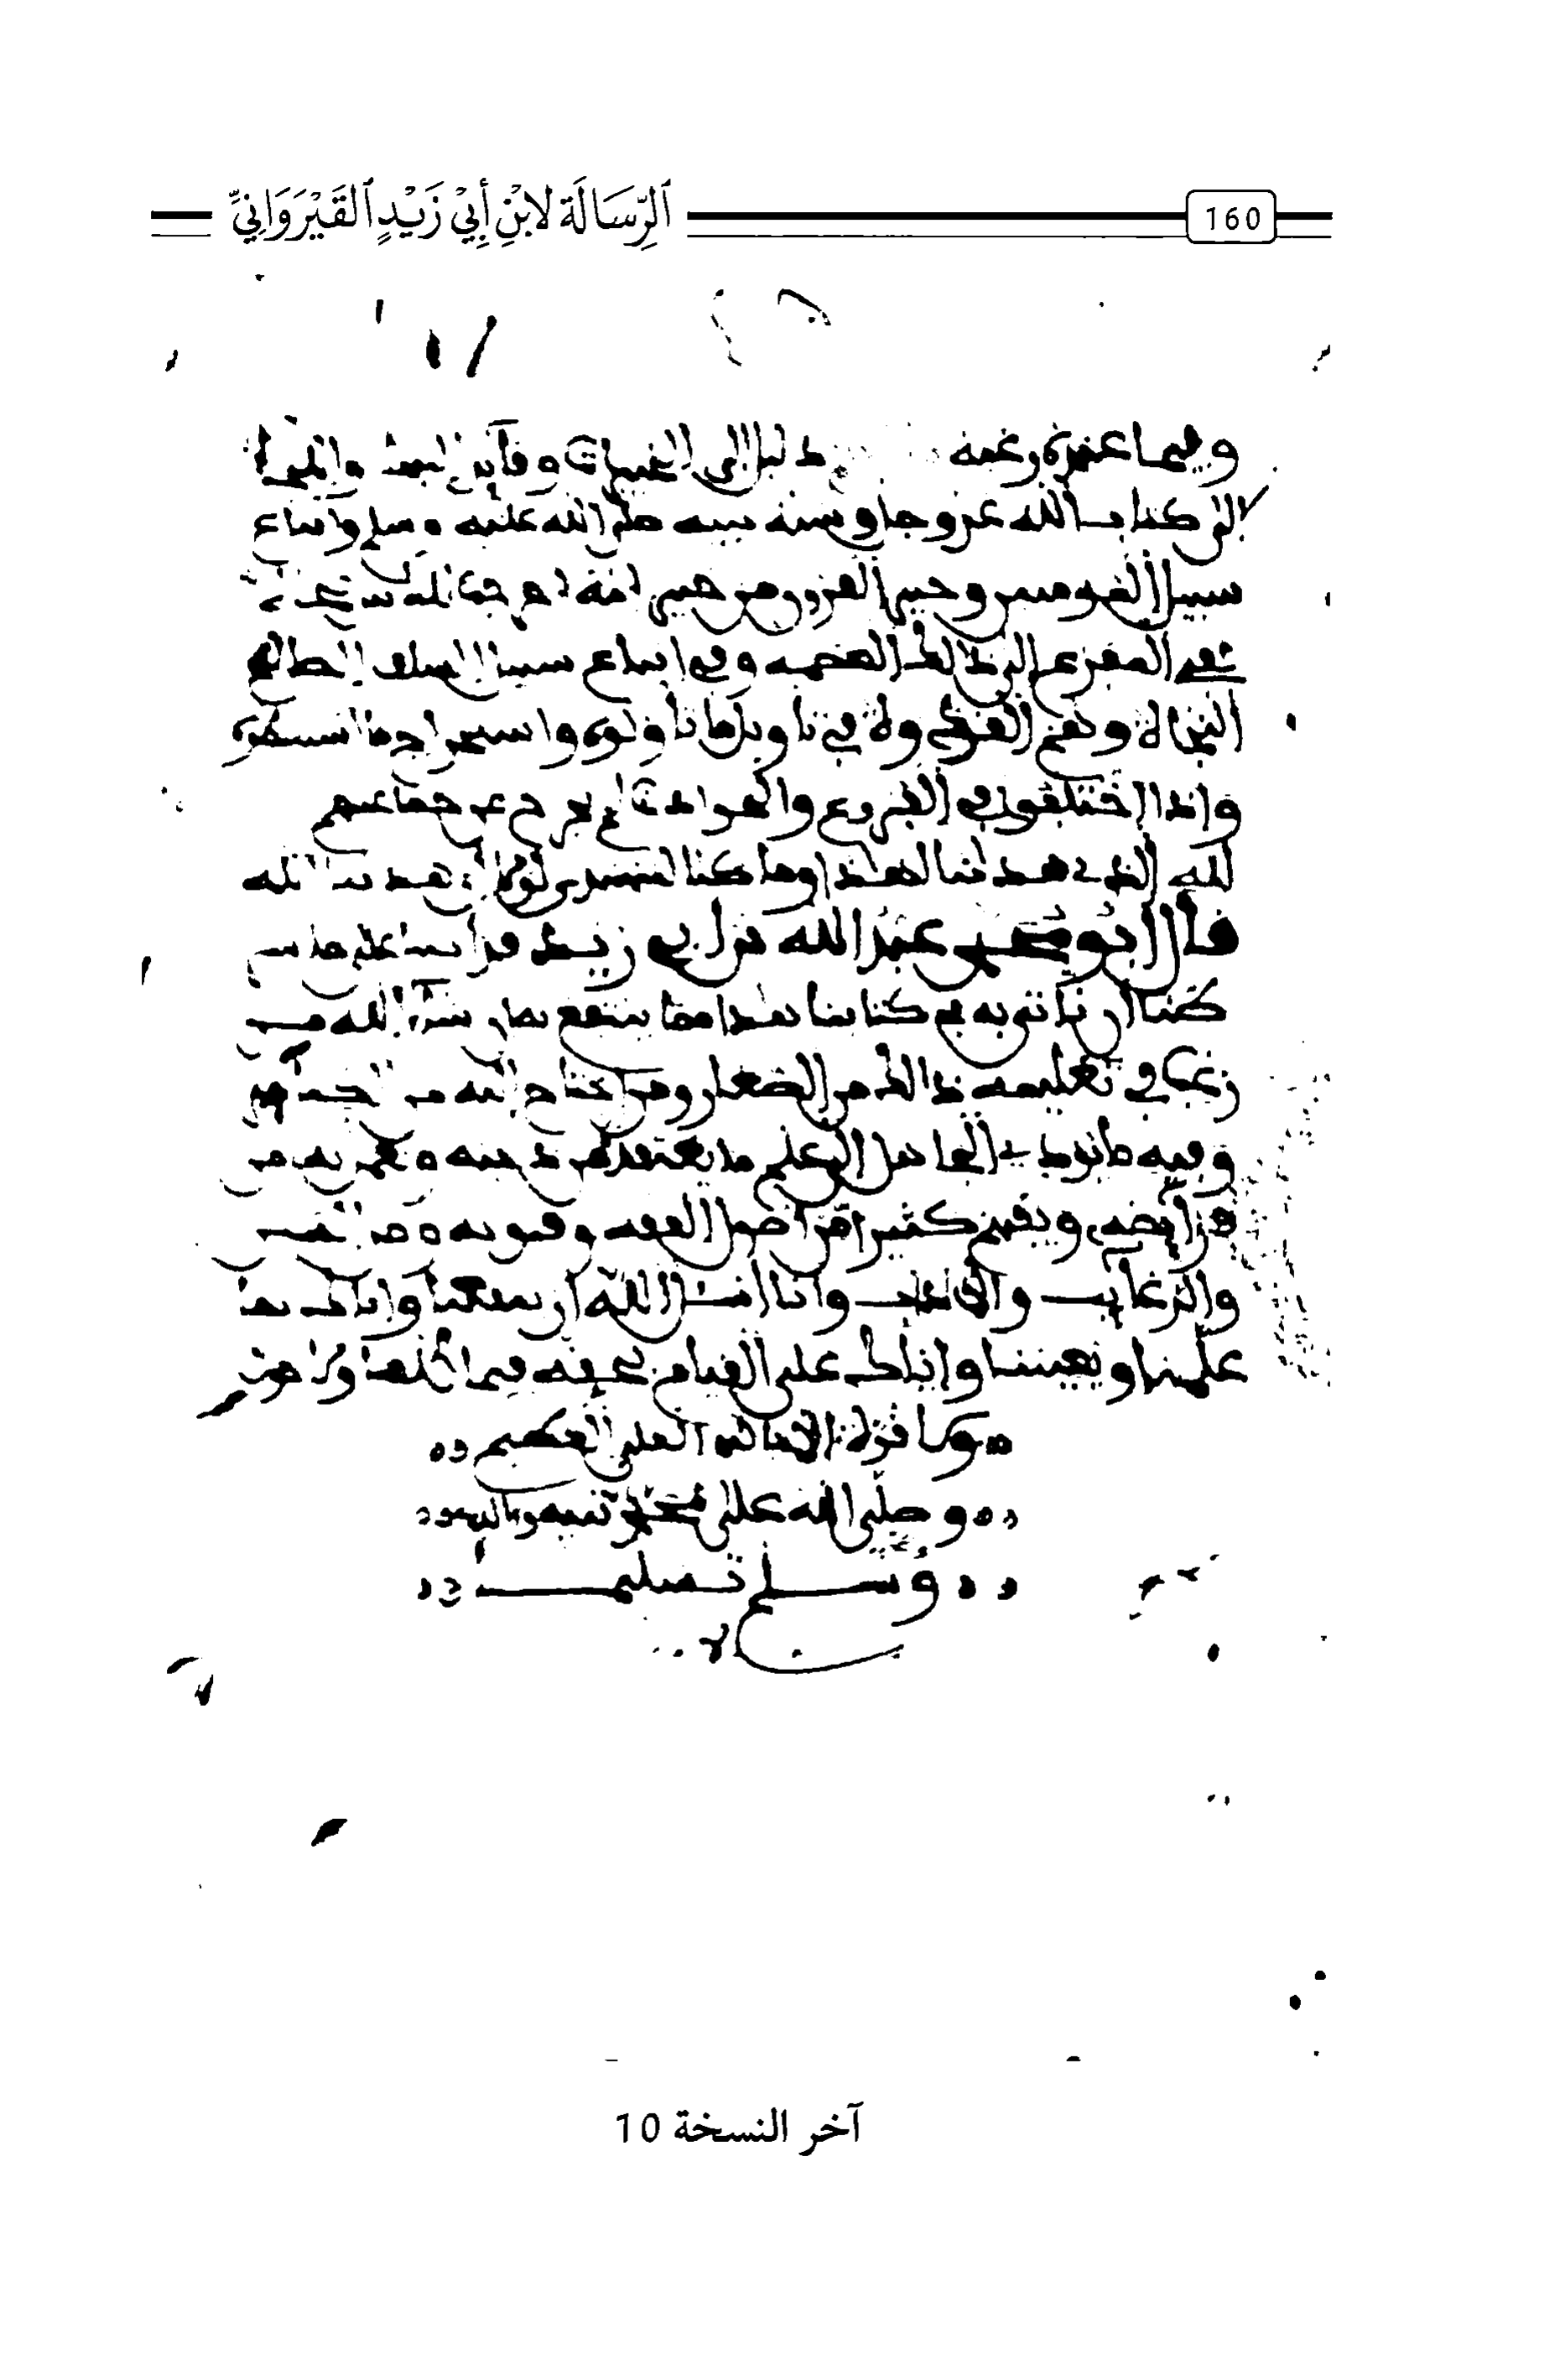 160
ٱلرِّسَالَة لابْنِ أَبِيْ زَيْدٍ ٱلقَيْرَوَانِيِّ
وفيما عنده رغبة دليل إلى الخيرات وقائد
إلى كتاب الله عز وجل وسنة نبيه صلى الله عليه وسلم واتباع
سبيل المؤمنين وخير القرون من خير أمة أخرجت للناس
ففي المفزع إلى ذلك العصمة وفي اتباع سبيل السلف الصالح
النجاة وهم القدوة في تأويل ما تأولوه واستخراج ما استنبطوه
وإذا اختلفوا في الفروع والحوادث لم يخرج عن جماعتهم
لله الذي هدانا لهذا وما كنا لنهتدي لولا أن هدانا الله
قال أبو محمد عبد الله بن أبي زيد قد أتينا على ما
كتابنا هذا مما ينتفع به إن شاء الله من
رغب في تعليمه ذلك من الصغار ومن احتاج إليه من الكبار
وفيه ما يؤدي الجاهل إلى علم ما يعتقده من دينه ويعمل به من
فرائضه ويفهم كثيرا من أصول الفقه وفنونه ومن السنن
والرغائب والآداب وأنا أسأل الله أن ينفعنا وإياك بما
علمنا ويعيننا وإياك على القيام بحقه فيما كلفنا ولا حول
ولا قوة إلا بالله العلي العظيم
وصلى الله على محمد نبيه وآله
وسلم تسليما
آخر النسخة 10